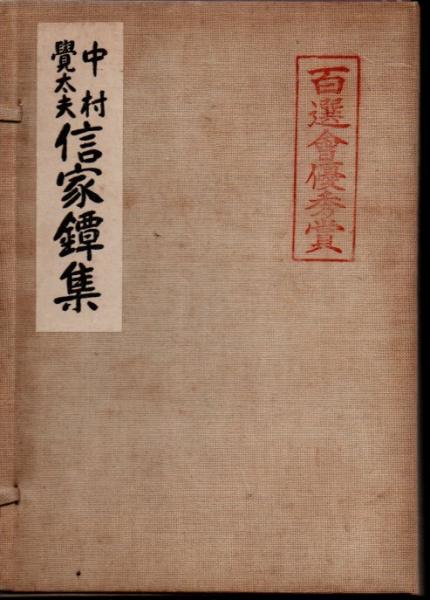 中村
覺太夫
信家鐔集
百選會優秀賞